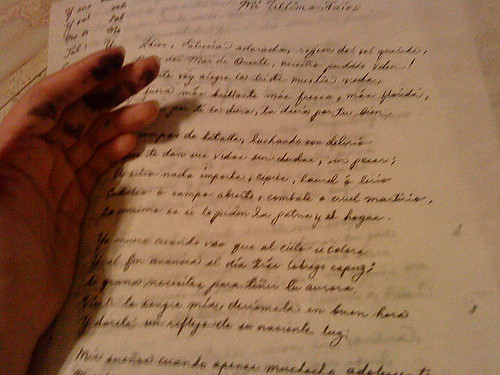 Mi Ultimo Adios
Adios, Patria adorada, region del sol querida,
del Mar de Oriente, nuestro perdido Eden!
te voy alegre la triste mustia vida,
fuera más brillante más fresca, más florida,
por ti la diera, la diera por tu bien.
campos de batalla, luchando con delirio
te dan sus vidas sin dudas, sin pesar;
sitio nada importa, cipres, laurel ó lirio
Cadalso o campo abierto, combate o cruel martirio,
Lo mismo es si lo piden la patria y el hogar.
Yo muero cuando veo que el cielo se colora
Y al fin anuncia el día tras lobrego capuz;
grana necesitas para teñir tu aurora.
Vierte la sangre mía, derramela en buen hora
Y dorela un reflejo de su naciente luz.
Mis sueños cuando apenas muchacho adolescente